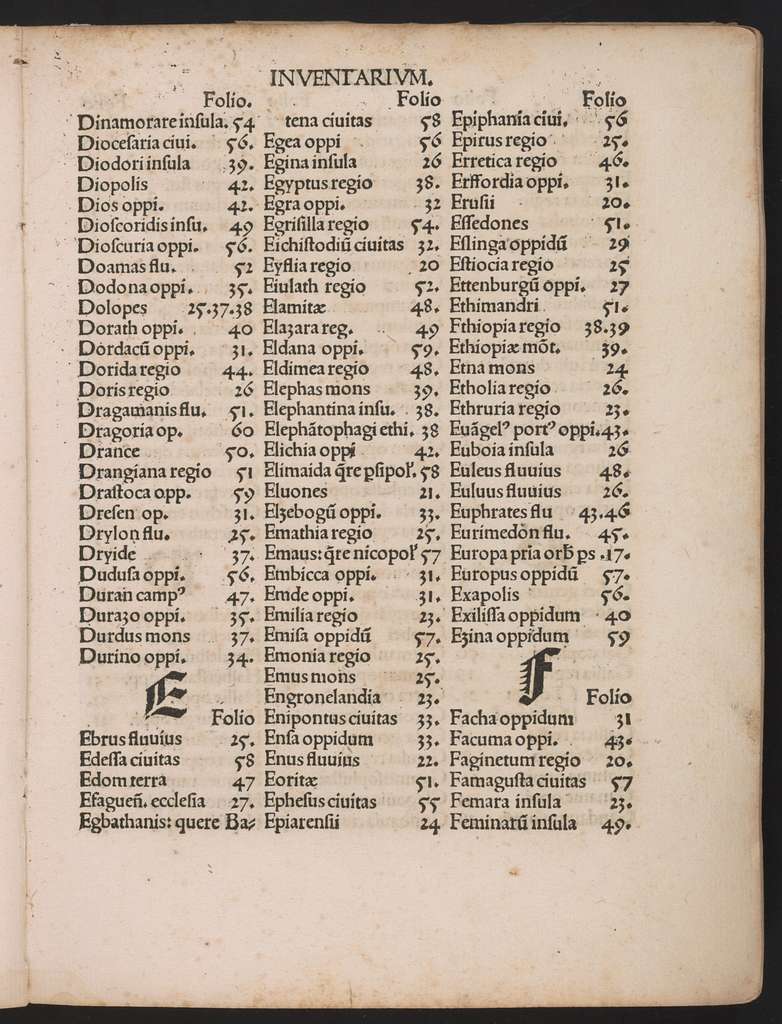 INVENTARIVM.
Folio.
Dinamorare inſula. 54
Dioceſaria ciui. 56.
Diodori inſula 39.
Diopolis 42.
Dios oppi. 42.
Dioſcoridis inſu. 49
Dioſcuria oppi. 56.
Doamas flu. 52
Dodona oppi. 35.
Dolopes 25.37.38
Dorath oppi. 40
Dordacū oppi. 31.
Dorida regio 44.
Doris regio 26
Dragamanis flu. 51.
Dragoria op. 60
Drance 50.
Drangiana regio 51
Draſtoca opp. 59
Dreſen op. 31.
Drylon flu. 25.
Dryide 37.
Duduſa oppi. 56.
Duran campꝰ 47.
Durazo oppi. 35.
Durdus mons 37.
Durino oppi. 34.
E
Folio
Ebrus fluuius 25.
Edeſſa ciuitas 58
Edom terra 47
Efagueñ. eccleſia 27.
Egbathanis: quere Ba⸗
Folio
tena ciuitas 58
Egea oppi 56
Egina inſula 26
Egyptus regio 38.
Egra oppi. 32
Egriſilla regio 54.
Eichiſtodiū ciuitas 32.
Eyſlia regio 20
Eiulath regio 52.
Elamitæ 48.
Elazara reg. 49
Eldana oppi. 59.
Eldimea regio 48.
Elephas mons 39.
Elephantina inſu. 38.
Elephātophagi ethi. 38
Elichia oppi 42.
Elimaida q̄re ꝑſipol'. 58
Eluones 21.
Elzebogū oppi. 33.
Emathia regio 25.
Emaus: q̄re nicopol' 57
Embicca oppi. 31.
Emde oppi. 31.
Emilia regio 23.
Emiſa oppidū 57.
Emonia regio 25.
Emus mons 25.
Engronelandia 23.
Enipontus ciuitas 33.
Enſa oppidum 33.
Enus fluuius 22.
Eoritæ 51.
Epheſus ciuitas 55
Epiarenſii 24
Folio
Epiphania ciui. 56
Epirus regio 25.
Erretica regio 46.
Erffordia oppi. 31.
Eruſii 20.
Eſſedones 51.
Eſlinga oppidū 29
Eſtiocia regio 25
Ettenburgū oppi. 27
Ethimandri 51.
Fthiopia regio 38.39
Ethiopiæ mōt. 39.
Etna mons 24
Etholia regio 26.
Ethruria regio 23.
Euāgelꝰ portꝰ oppi. 43.
Euboia inſula 26
Euleus fluuius 48.
Euluus fluuius 26.
Euphrates flu 43.46
Eurimedōn flu. 45.
Europa pria orb̄ ps .17.
Europus oppidū 57.
Exapolis 56.
Exiliſſa oppidum 40
Ezina oppidum 59
F
Folio
Facha oppidum 31
Facuma oppi. 43.
Faginetum regio 20.
Famaguſta ciuitas 57
Femara inſula 23.
Feminarū inſula 49.